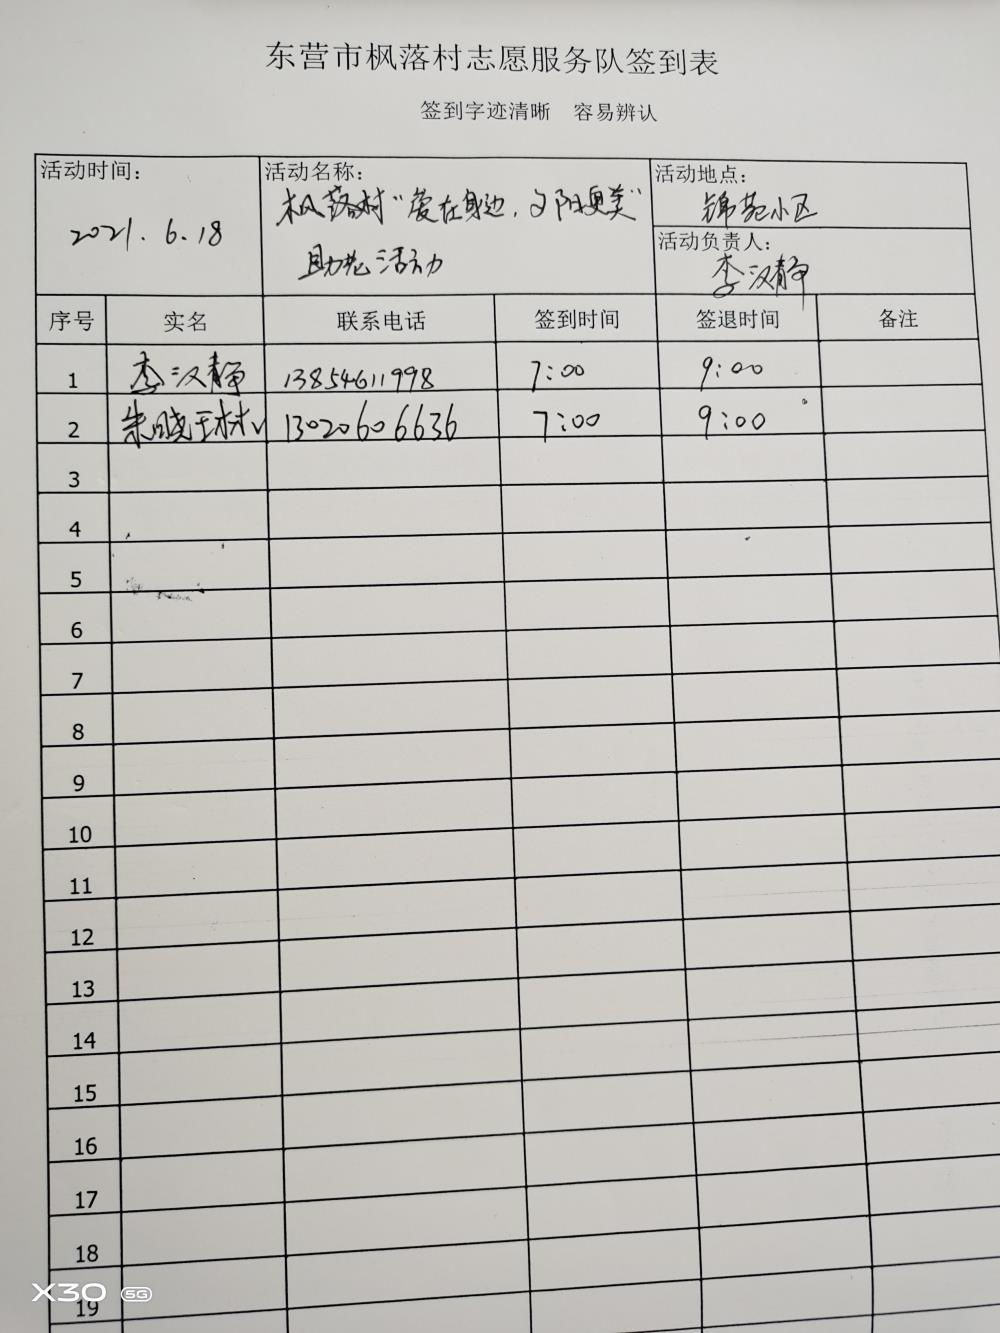 东营市枫落村志愿服务队签到表
签到字迹清晰 容易辨认
活动时间：
2021.6.18
活动名称：
枫落村“爱在身边，夕阳更美”
助老活动
活动地点：
锦苑小区
活动负责人：
李汉静
序号 实名 联系电话 签到时间 签退时间 备注
1 李汉静 13854611998 7:00 9:00
2 朱晓琳 13020606636 7:00 9:00
3
4
5
6
7
8
9
10
11
12
13
14
15
16
17
18
19
X30 5G